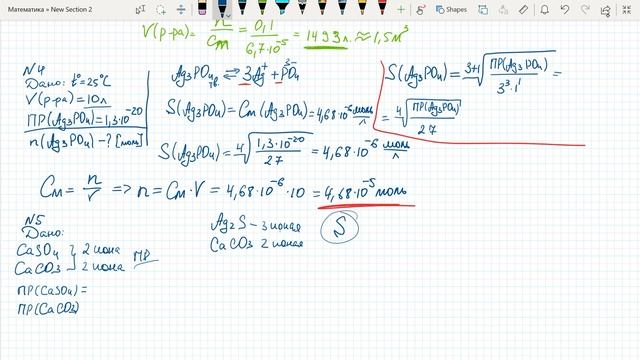 Математика » New Section 2
Shapes
V(р-ра) = n/Cm = 0,1/6,7·10⁻⁵ = 1493 л. ≈ 1,5 м³
N4
Дано: t°=25°C
V(р-ра)=10л
ПР(Ag₃PO₄)=1,3·10⁻²⁰
n(Ag₃PO₄)-? [моль]
Ag₃PO₄ тв. ⇄ 3Ag⁺ + PO₄³⁻
S(Ag₃PO₄) = Cm(Ag₃PO₄) = 4,68·10⁻⁶ моль/л
S(Ag₃PO₄) = ⁴√(1,3·10⁻²⁰/27) = 4,68·10⁻⁶ моль/л
S(Ag₃PO₄) = ³⁺¹√(ПР(Ag₃PO₄)/3³·1¹) =
= ⁴√(ПР(Ag₃PO₄)/27)
Cm = n/V => n = Cm·V = 4,68·10⁻⁶·10 = 4,68·10⁻⁵ моль
N5
Дано:
CaSO₄ } 2 иона
CaCO₃ } 2 иона ПР
ПР(CaSO₄) =
ПР(CaCO₃)
Ag₂S – 3 ионая
CaCO₃ 2 ионая
S